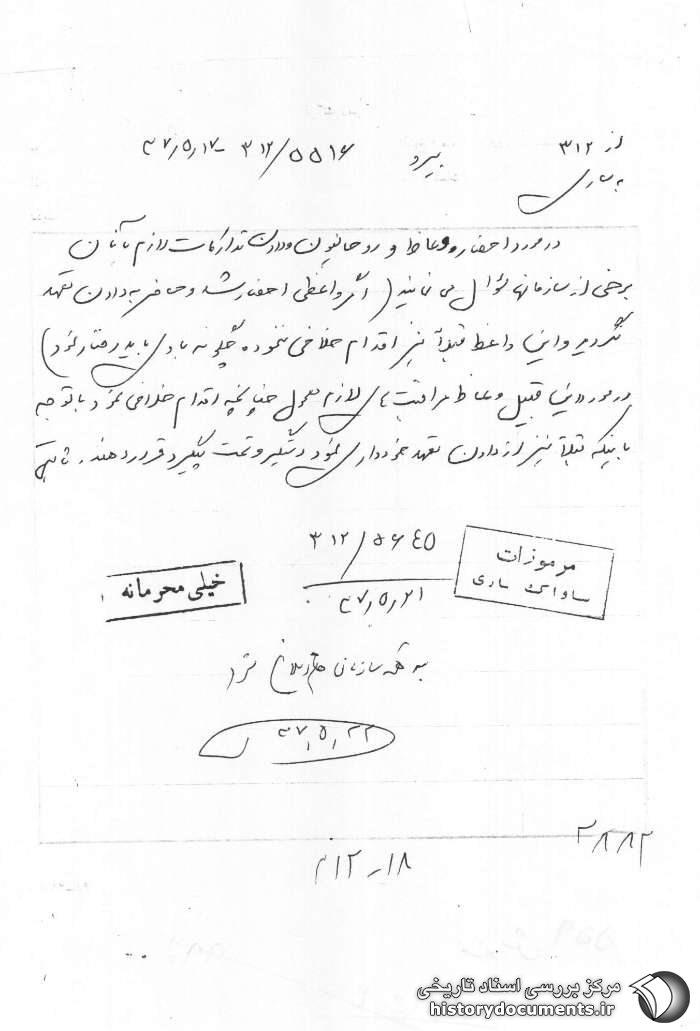 از ۳۱۲
به ساری
پیرو ۳۱۲/۵۵۱۶ - ۴۷٫۵٫۱۷
در مورد احضار وعاظ و روحانیون و دادن تذکارات لازم بآنان
برخی از سازمانها سئوال می نمایند (اگر واعظی احضار شد و حاضر به دادن تعهد
نگردید و این واعظ قبلاً نیز اقدام خلافی ننموده چگونه با وی باید رفتار نمود)
در مورد این قبیل وعاظ مراقبت های لازم معمول چنانچه اقدام خلافی نمود با توجه
باینکه قبلاً نیز از دادن تعهد خودداری نموده دستگیر و تحت پیگرد قرار دهند. ثابتی
۳۱۲/۵۶۴۵
۴۷٫۵٫۲۱
مرموزات
ساواک ساری
خیلی محرمانه
به کلیه سازمان ها ابلاغ شد
۴۷٫۵٫۲۲
۲۸۸۲
۱۸ر۱۲م
مرکز بررسی اسناد تاریخی
historydocuments.ir